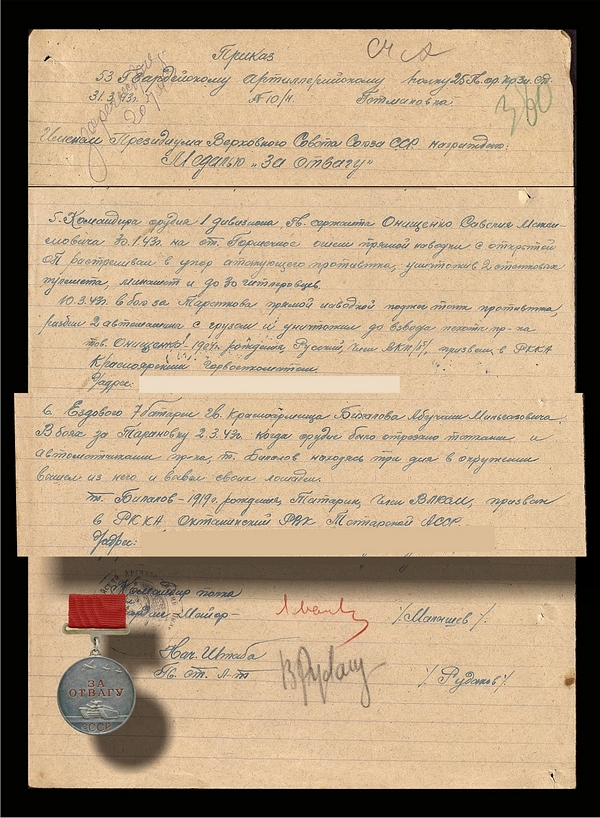 Приказ
53 Гвардейскому артиллерийскому полку 25 Гв. Кр. Зн. Сд.
31.3.43г. №10/н. Готмановка.
360
Именем Президиума Верховного Совета Союза ССР награждаю:
Медалью „За отвагу"
5. Командира орудия 1 дивизиона, Гв. сержанта Онищенко Савелия Макси-
мовича 30.1.43г. на ст. огнем прямой наводки с открытой
ОП растреливал в упор атакующего противника, уничтожив 2 станковых
пулемета, миномет и до 30 гитлеровцев.
10.3.43г. в бою за прямой наводкой танк противника,
разбил 2 автомашины с грузом и уничтожил до взвода пехоты пр-ка
тов. Онищенко - 1904г. рождения, Русский, Член ВКП/б/, призван в РККА
Красноярским Горвоенкоматом.
Адрес:
6. Ездового 7 батареи Гв. Красноармейца Билалова
В боях за Тарановку 2.3.43г. когда орудие было отрезано танками и
автоматчиками пр-ка, т. Билалов находясь три дня в окружении
вышел из него и вывел своих лошадей.
т. Билалов - 1919г. рождения, Татарин, Член ВЛКСМ, призван
в РККА РВК Татарской АССР.
Адрес:
Командир полка
Гвардии Майор - /Малышев/.
Нач. Штаба
Гв. ст. Л-т /Рудаков/
ЗА
ОТВАГУ
СССР